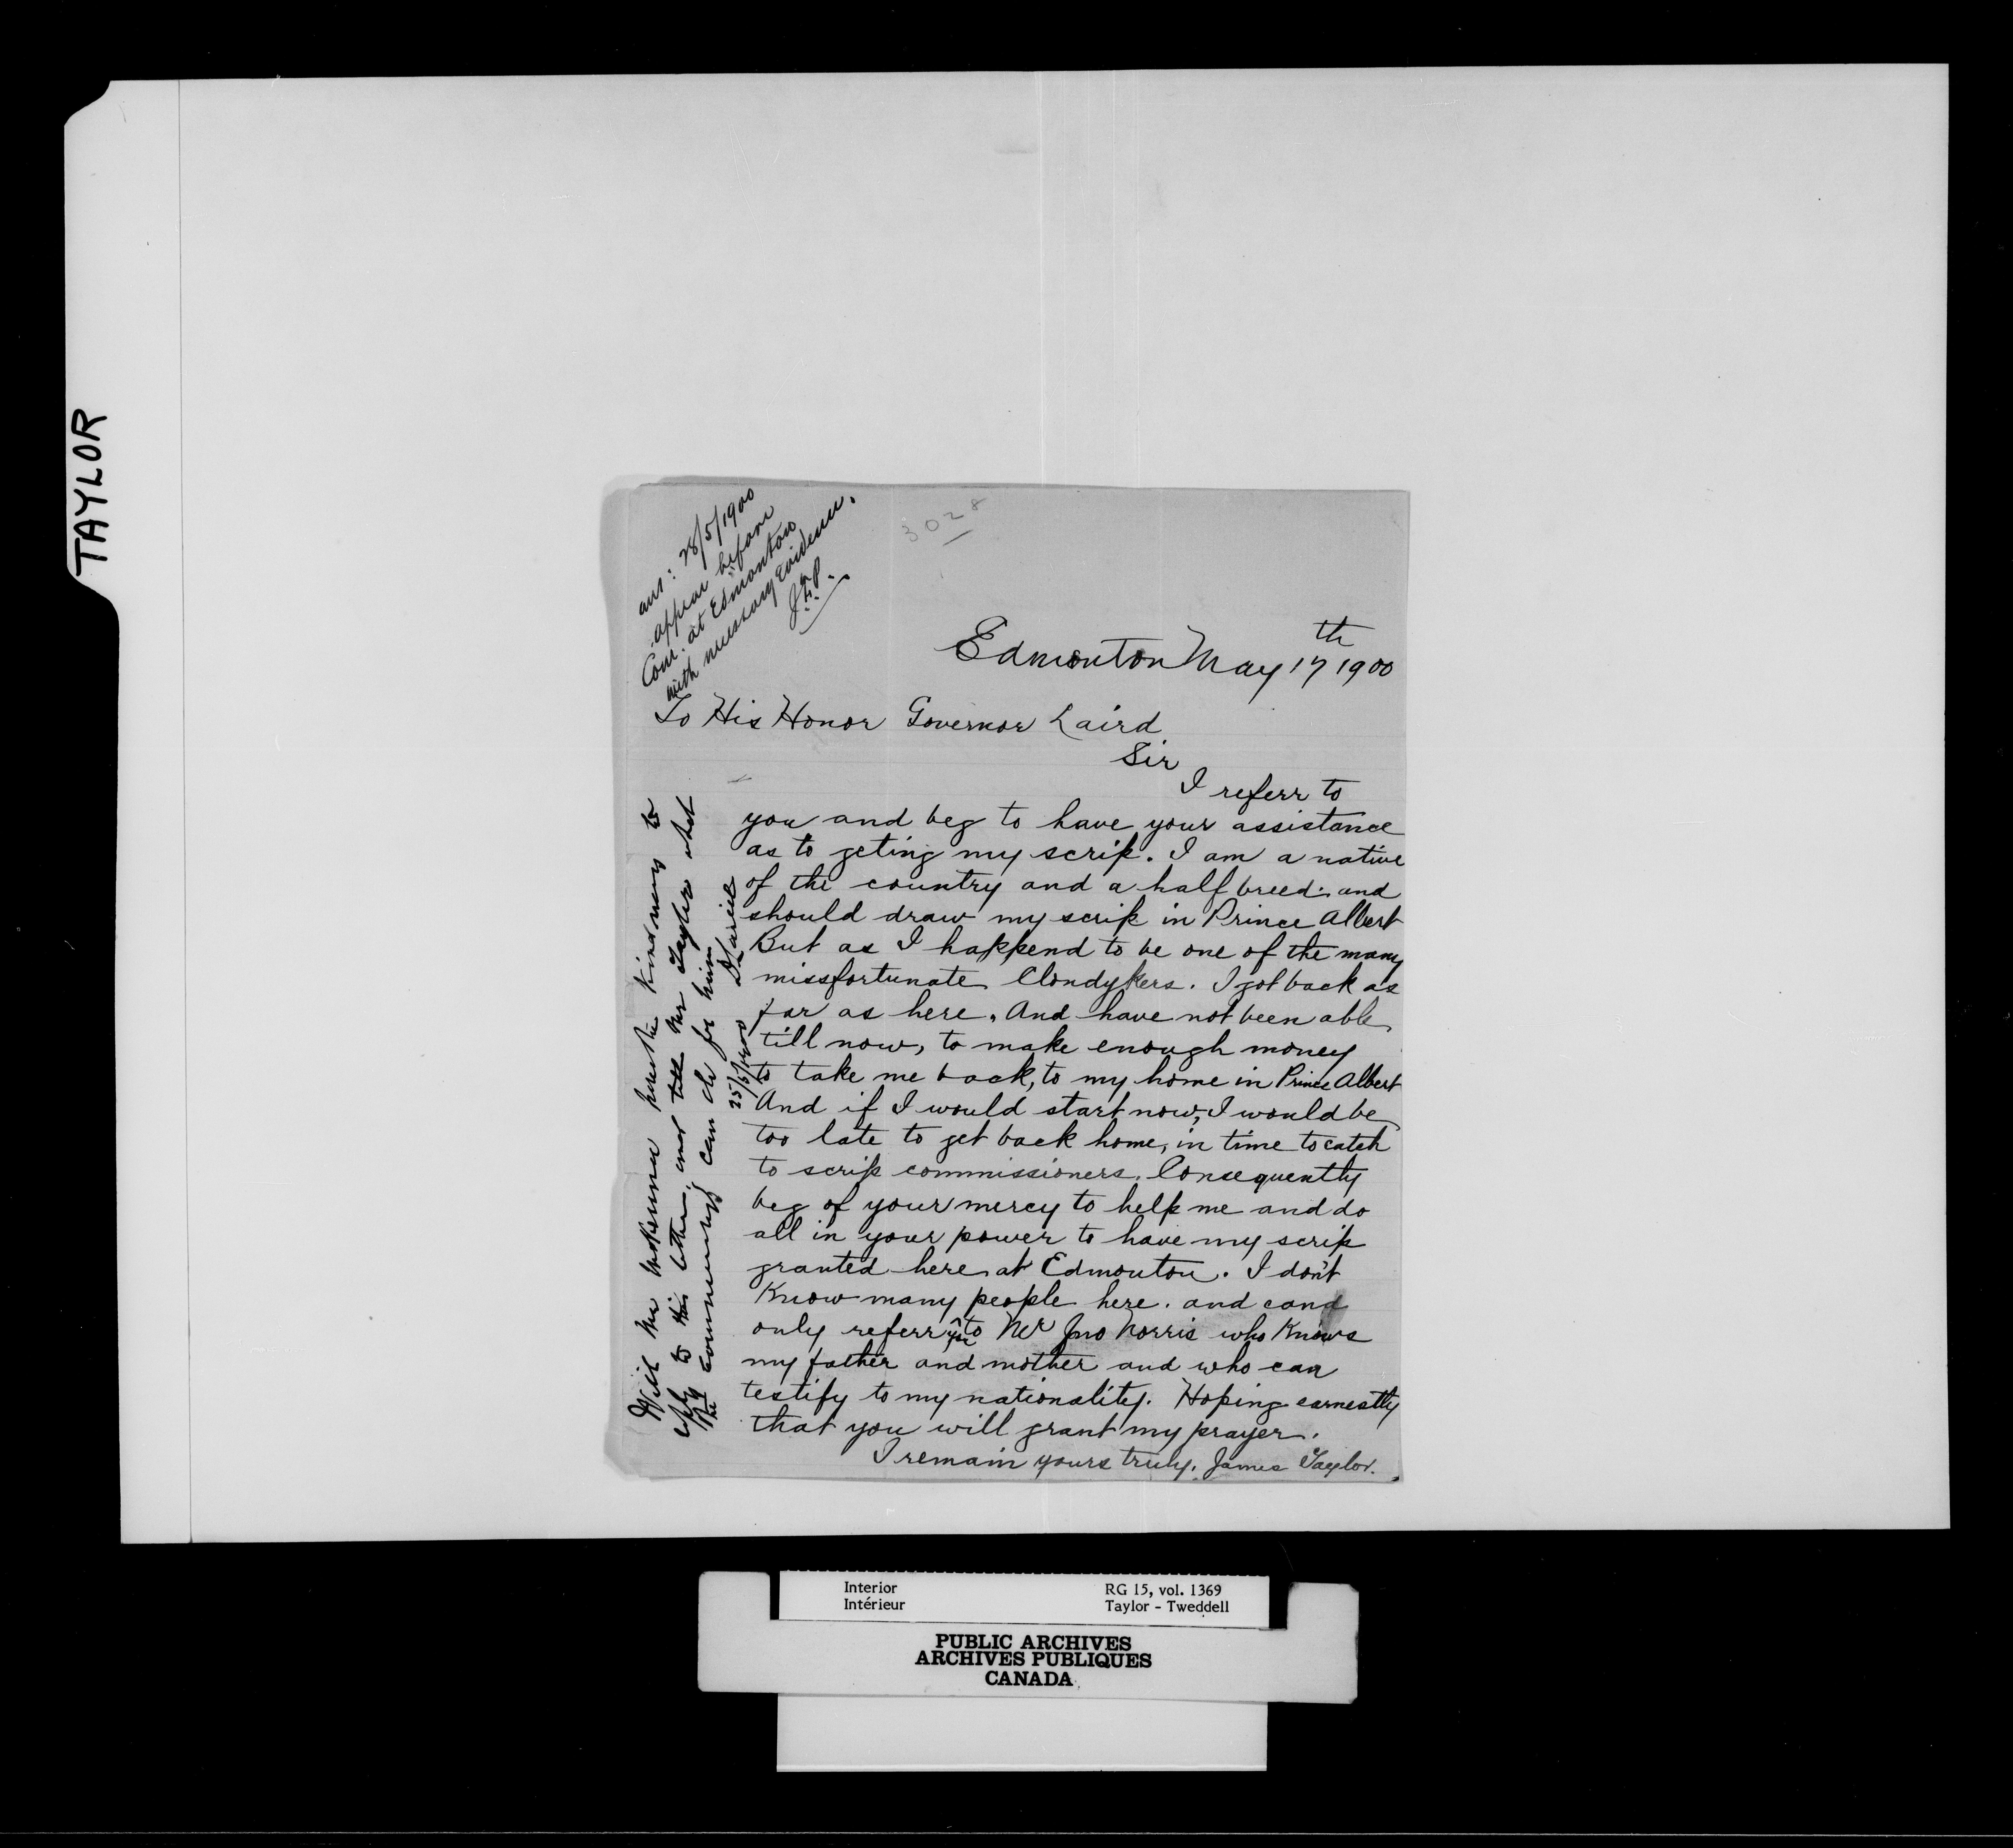 TAYLOR
3028
ans: 28/5/1900
appear before
Com. at Edmonton
with necessary Evidence.
Edmonton May 17th 1900
To His Honor Governor Laird
Sir
I referr to
you and beg to have your assistance
as to geting my scrip. I am a native
of the country and a half breed. and
should draw my scrip in Prince Albert
But as I happend to be one of the many
missfortunate Clondykers. I got back as
far as here. And have not been able
till now, to make enough money
to take me back, to my home in Prince Albert
And if I would start now, I would be
too late to get back home, in time to catch
to scrip commissioners. Consequently
beg of your mercy to help me and do
all in your power to have my scrip
granted here at Edmonton. I don't
Know many people here. and cand
only referr you to Mr Jno Norris who Knows
my father and mother and who can
testify to my nationality. Hoping earnestly
that you will grant my prayer.
I remain yours truly. James Taylor.
Will Mr McKenna have the kindness to
reply to this letter, and tell Mr Taylor what
the Commissrs can do for him
25/5/1900 D Laird
Interior RG 15, vol. 1369
Intérieur Taylor - Tweddell
PUBLIC ARCHIVES
ARCHIVES PUBLIQUES
CANADA